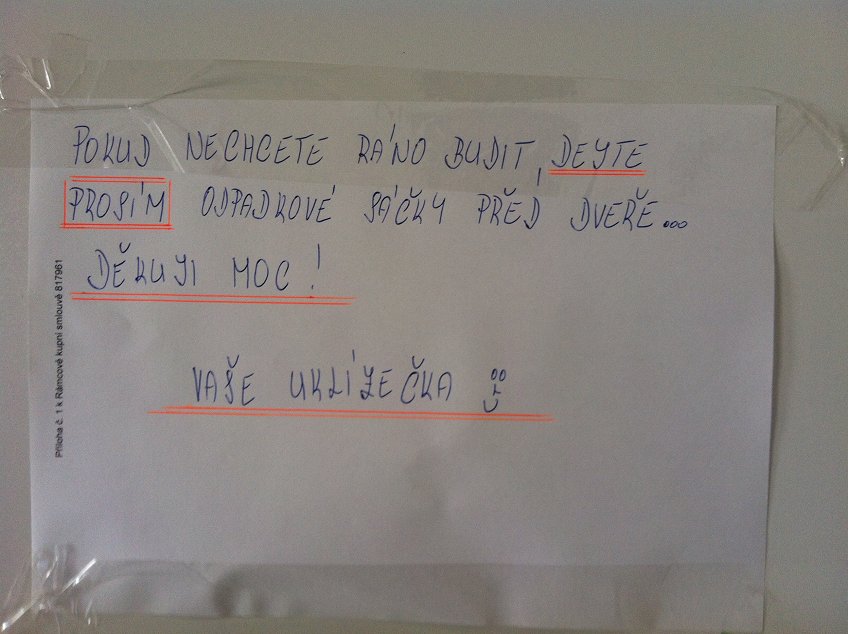 POKUD NECHCETE RÁNO BUDIT, DEJTE
PROSÍM ODPADKOVÉ SÁČKY PŘED DVEŘE...
DĚKUJI MOC!
VAŠE UKLÍZEČKA
Příloha č. 1 k Rámcové kupní smlouvě 817961